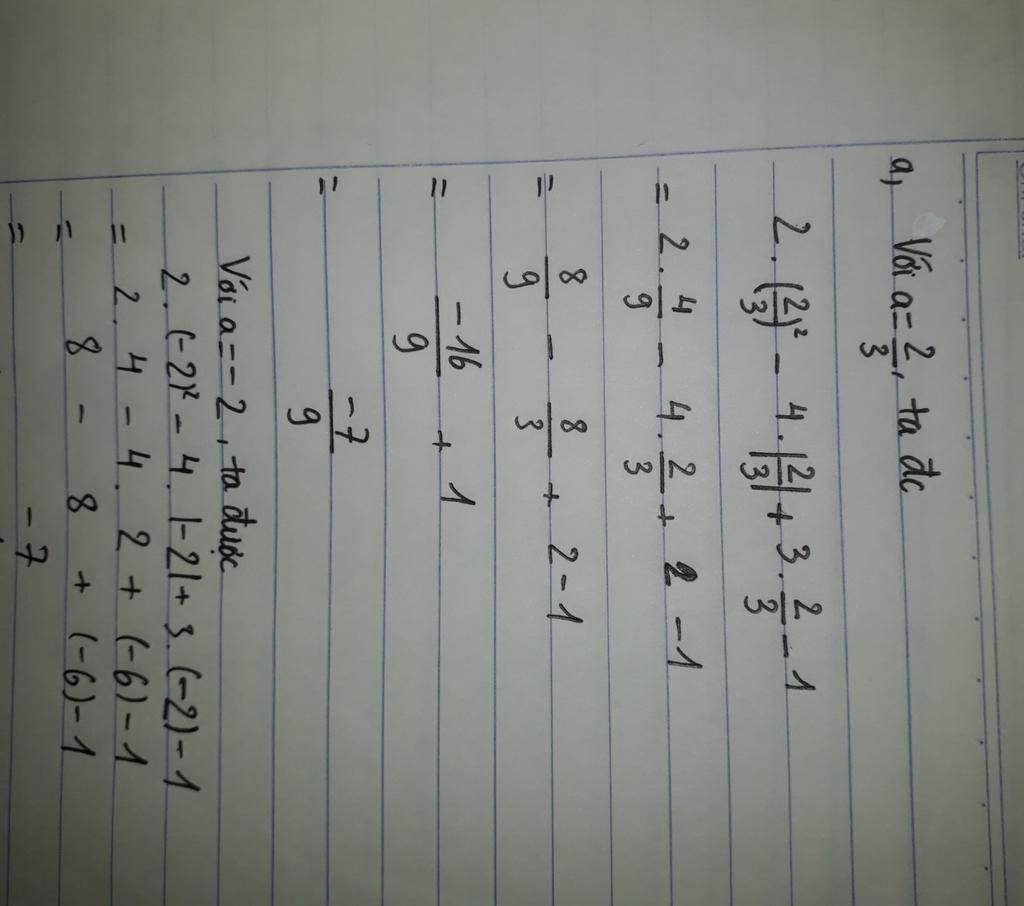 a, Với a = 2/3, ta đc
2 . (2/3)² - 4 . |2/3| + 3 . 2/3 - 1
= 2 . 4/9 - 4 . 2/3 + 2 - 1
= 8/9 - 8/3 + 2 - 1
= -16/9 + 1
= -7/9
Với a = - 2, ta được
2 . (-2)² - 4 . |-2| + 3 . (-2) - 1
= 2 . 4 - 4 . 2 + (-6) - 1
= 8 - 8 + (-6) - 1
= -7